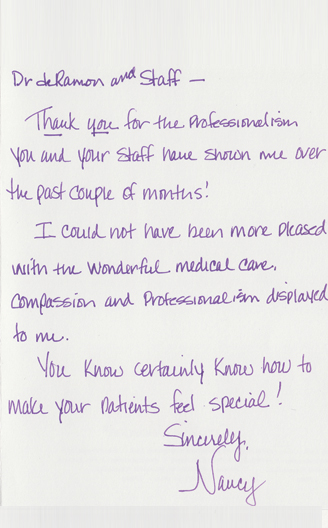 Dr deRamon and Staff —
Thank you for the Professionalism
you and your staff have shown me over
the past couple of months!
I could not have been more pleased
with the wonderful medical care,
compassion and Professionalism displayed
to me.
You know certainly know how to
make your patients feel special!
Sincerely,
Nancy